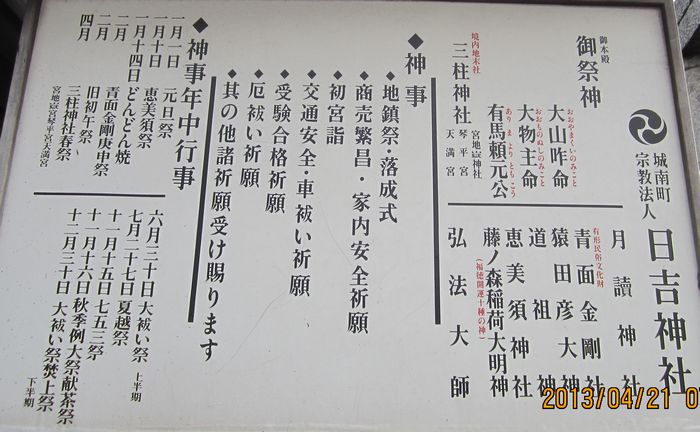 城南町
宗教法人
日吉神社
御本殿
御祭神
おおやまくいのみこと
大山咋命
おおものぬしのみこと
大物主命
ありまよりともこう
有馬頼元公
境内地末社
三柱神社
宮地嶽神社
琴平宮
天満宮
月讀神社
有形民俗文化財
青面金剛社
猿田彦大神
道祖神
恵美須神社
藤ノ森稲荷大明神
(福徳開運十種の神)
弘法大師
◆神事
◆地鎮祭・落成式
◆商売繁昌・家内安全祈願
◆初宮詣
◆交通安全・車祓い祈願
◆受験合格祈願
◆厄祓い祈願
◆其の他諸祈願受け賜ります
◆神事年中行事
一月一日 元旦祭
一月十日 恵美須祭
一月十四日 どんどん焼
二月 青面金剛庚申祭
二月 旧初午祭
四月 三柱神社春祭
宮地嶽宮琴平宮天満宮
六月三十日 大祓い祭 上半期
七月二十七日 夏越祭
十一月十五日 七五三祭
十一月十六日 秋季例大祭献茶祭
十二月三十日 大祓い祭焚上祭
下半期
2013/04/21 0